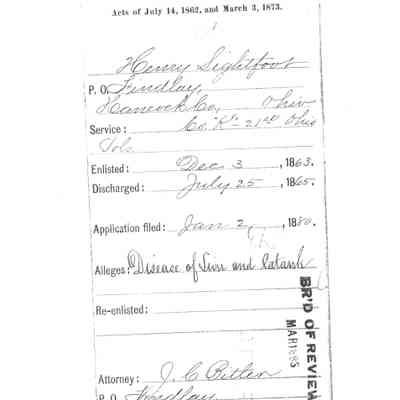 Acts of July 14, 1862, and March 3, 1873.
Henry Lightfoot
P. O. Findlay,
Hancock Co, Ohio
Service: Co. "K" - 21st Ohio
Vols
Enlisted: Dec 3, 1863.
Discharged: July 25, 1865.
Application filed: Jan 2, 1880.
Alleges: Disease of and Catarrh
Re-enlisted:
BR'D OF REVIEW
MAR 1885
Attorney: J. C. Bitler
P. O. Findlay